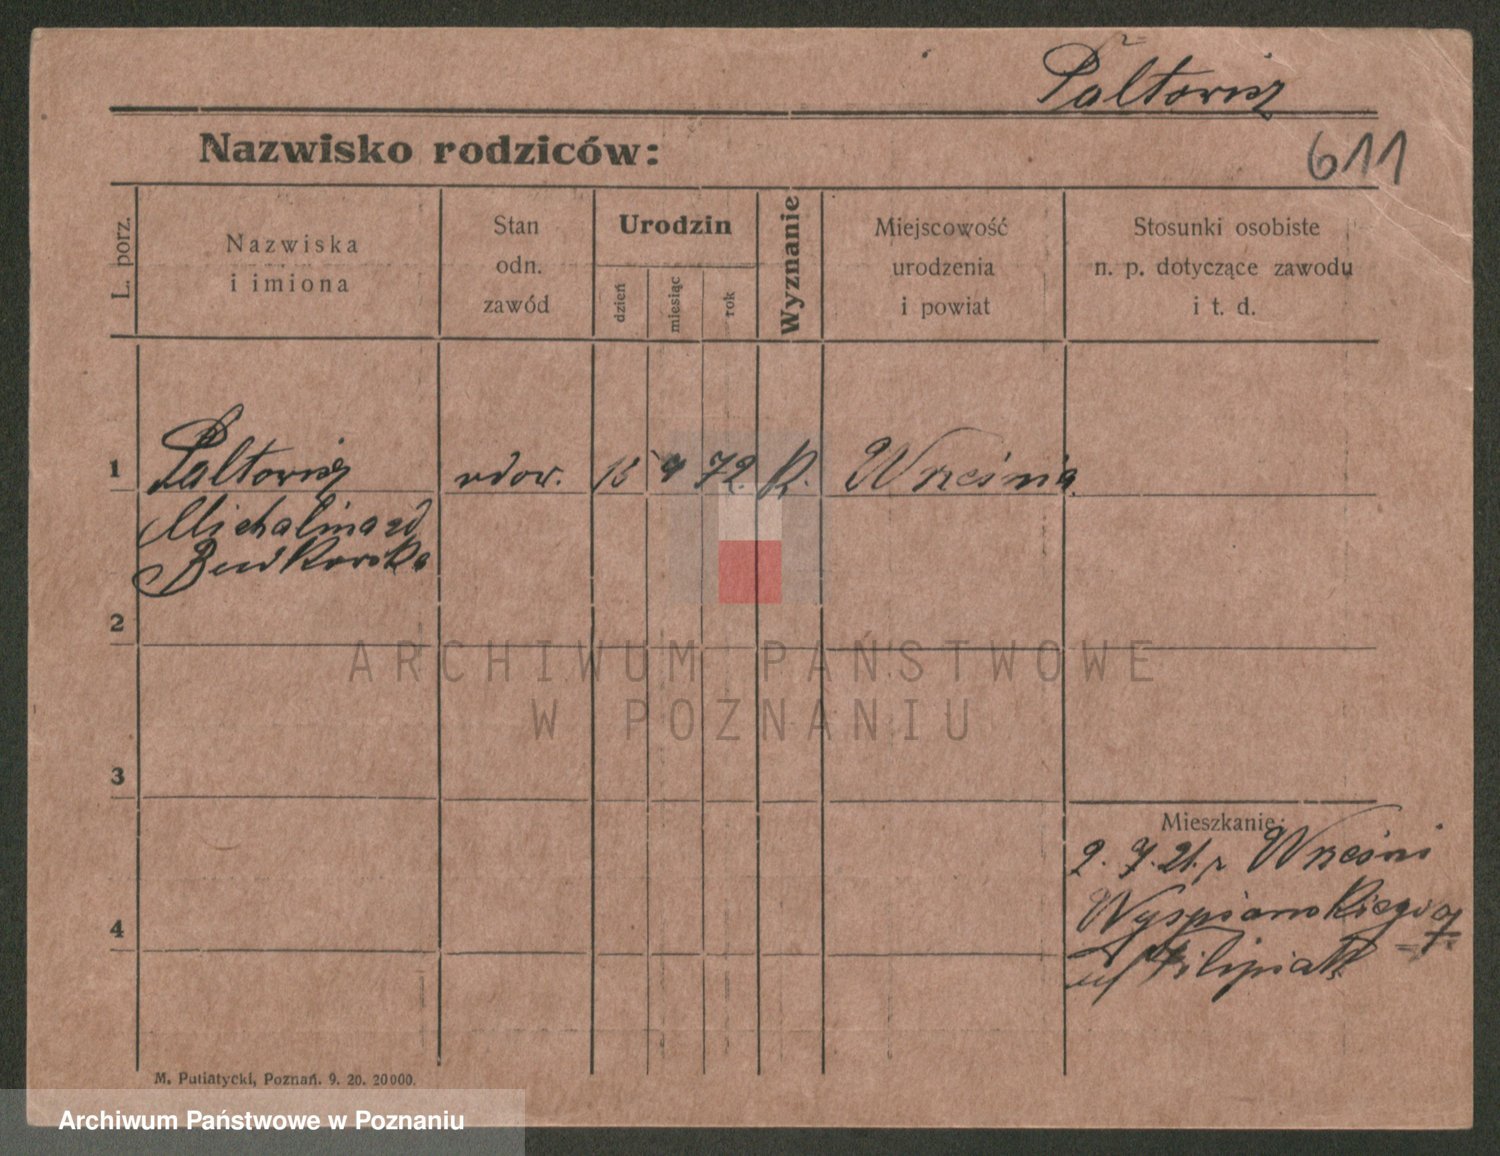 Paltowisz
Nazwisko rodziców:
611
L. porz.
Nazwiska
i imiona
Stan
odn.
zawód
Urodzin
dzień
miesiąc
rok
Wyznanie
Miejscowość
urodzenia
i powiat
Stosunki osobiste
n. p. dotyczące zawodu
i t. d.
1
Paltowisz wdow. 15 9 72. R. Września
Michalina zd
Budkowska
2
3
4
Mieszkanie:
2. 7. 21. z Wrześni
Wyspiańskiego 7
Filipiak
M. Putiatycki, Poznań. 9. 20. 20000.
ARCHIWUM PAŃSTWOWE
W POZNANIU
Archiwum Państwowe w Poznaniu